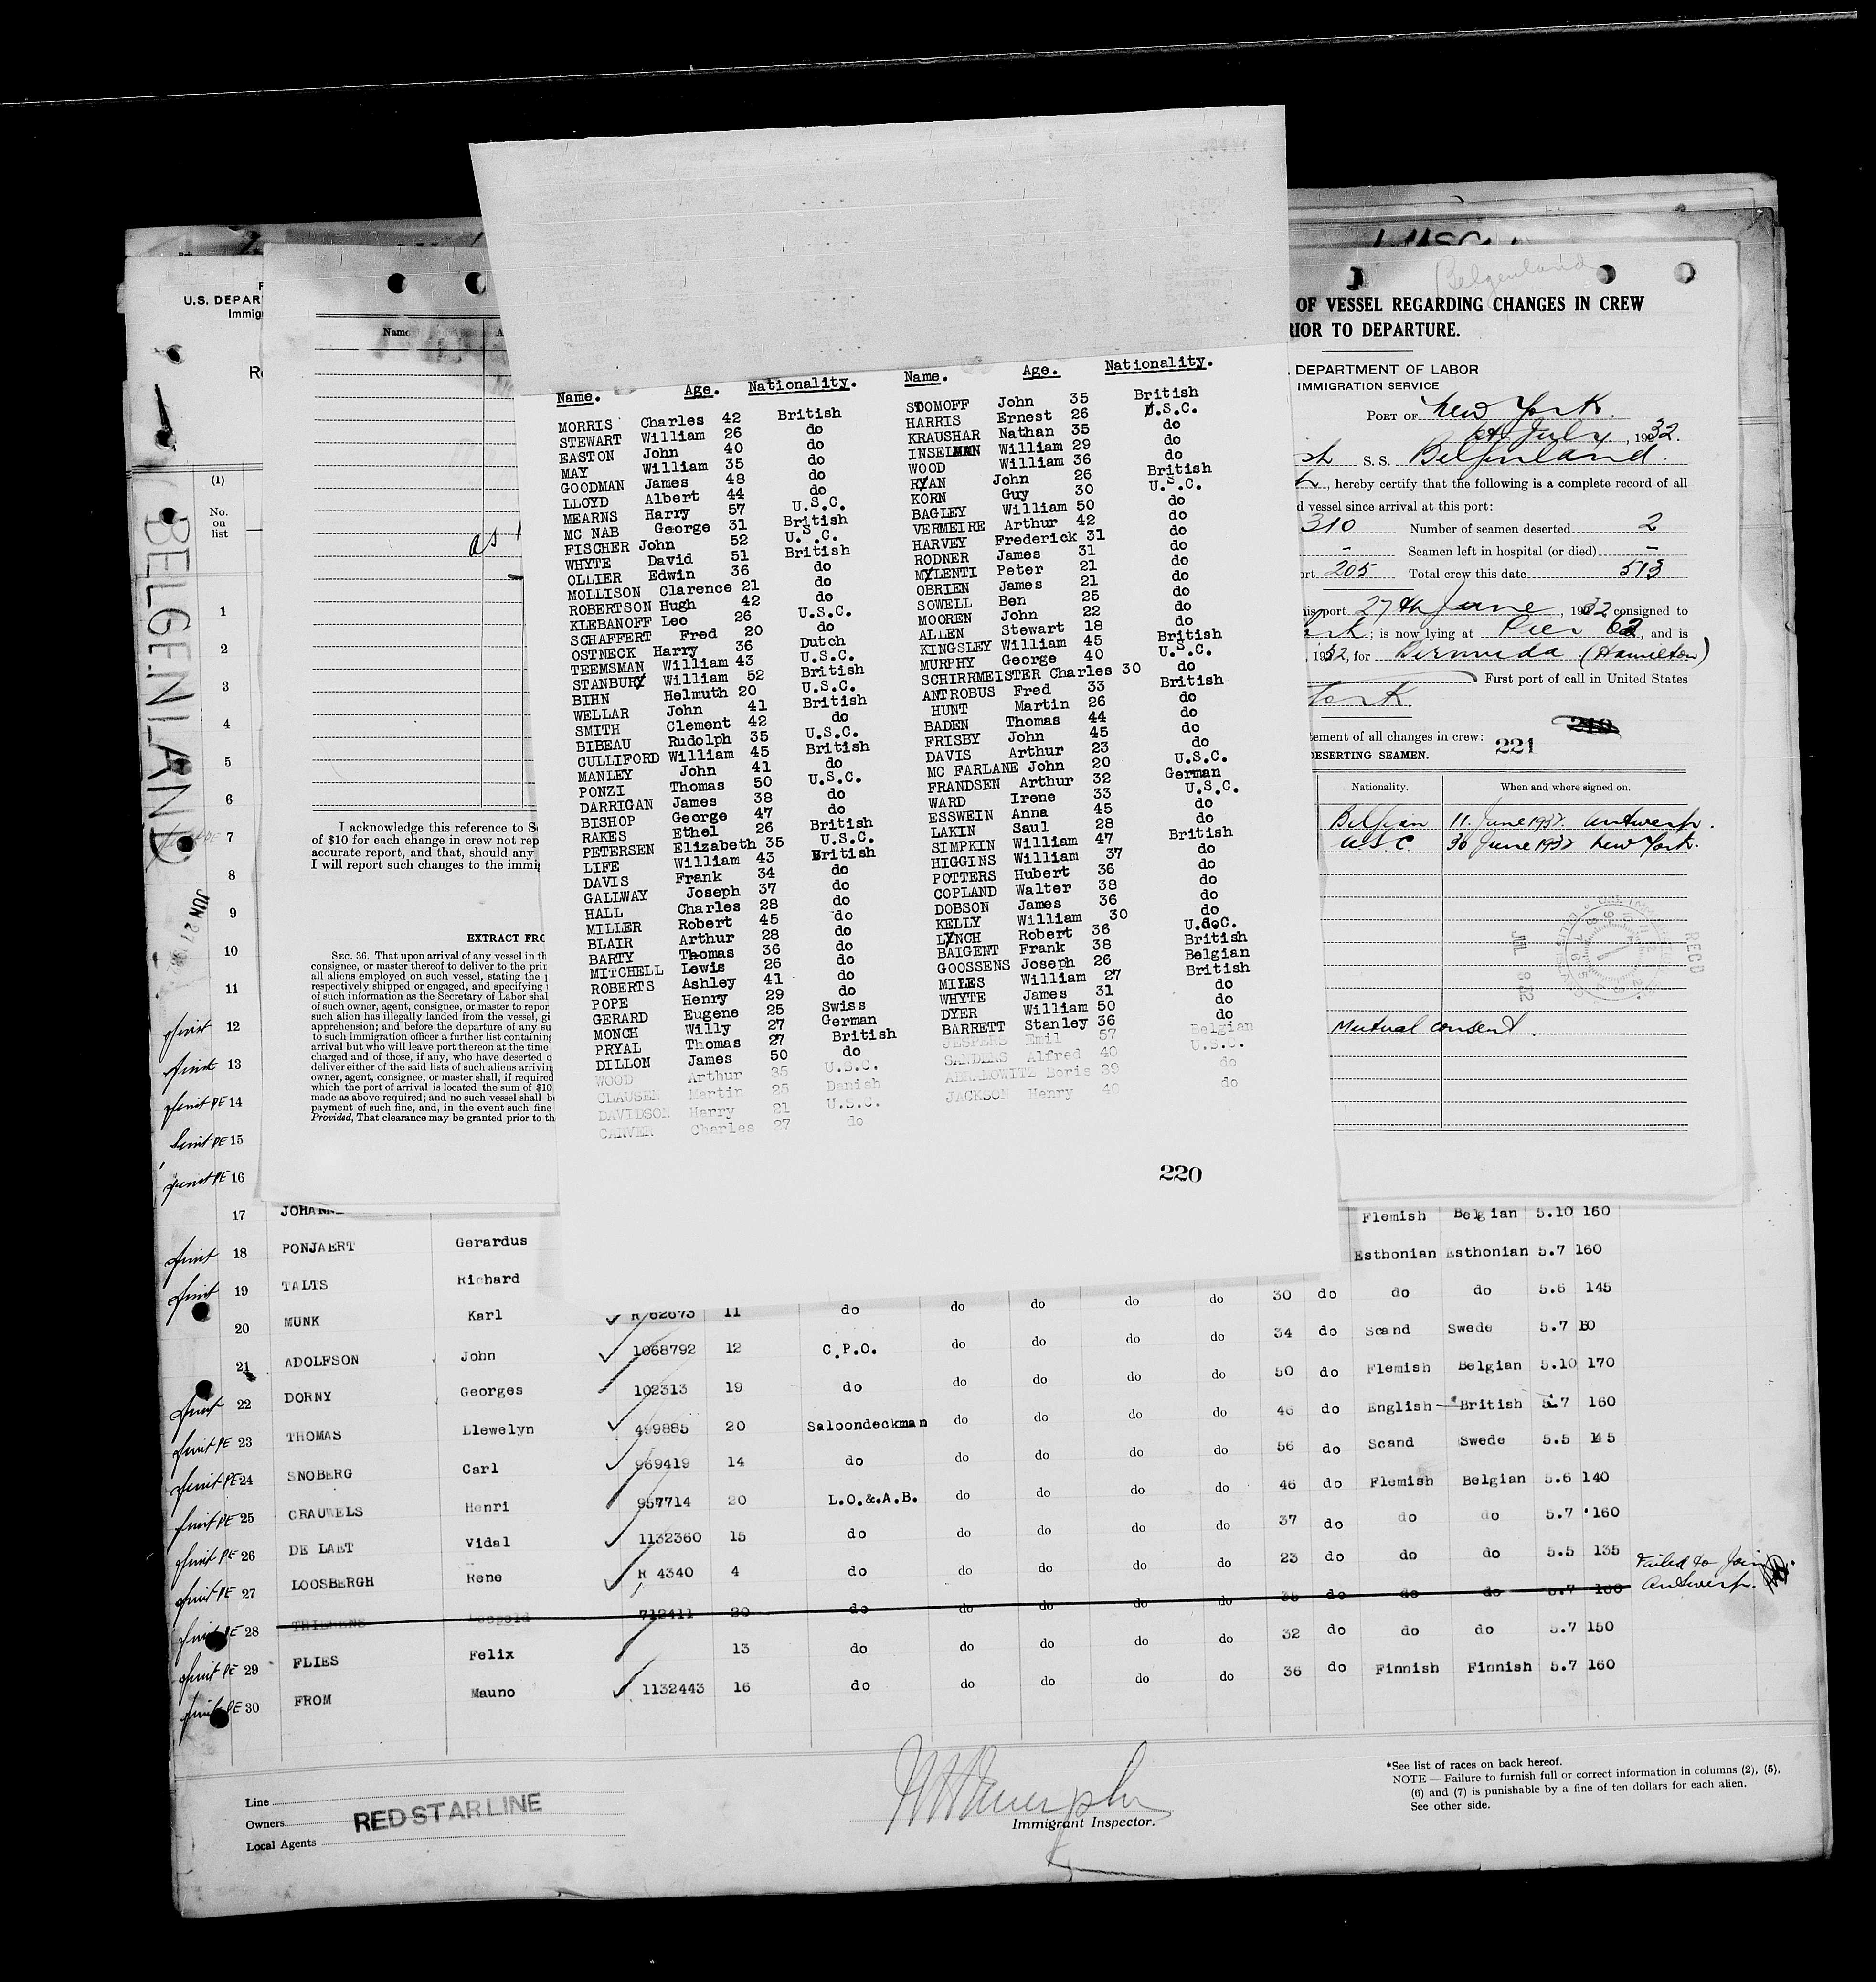 BELGENLAND
JUN 27
U.S. DEPAR
Immig
(1)
No.
on
list
Name
as
I acknowledge this reference to S
of $10 for each change in crew not rep
accurate report, and that, should any
I will report such changes to the immig
EXTRACT FRO
SEC. 36. That upon arrival of any vessel in th
consignee, or master thereof to deliver to the prin
all aliens employed on such vessel, stating the p
respectively shipped or engaged, and specifying
of such information as the Secretary of Labor shal
of such owner, agent, consignee, or master to repor
such alien has illegally landed from the vessel, gi
apprehension; and before the departure of any su
to such immigration officer a further list containing
arrival but who will leave port thereon at the time
charged and of those, if any, who have deserted o
deliver either of the said lists of such aliens arrivin
owner, agent, consignee, or master shall, if required
which the port of arrival is located the sum of $10
made as above required; and no such vessel shall be
payment of such fine, and, in the event such fine
Provided, That clearance may be granted prior to th
Name. Age. Nationality.
MORRIS Charles 42 British
STEWART William 26 do
EASTON John 40 do
MAY William 35 do
GOODMAN James 48 do
LLOYD Albert 44 do
MEARNS Harry 57 U.S.C.
MC NAB George 31 British
FISCHER John 52 U.S.C.
WHYTE David 51 British
OLLIER Edwin 36 do
MOLLISON Clarence 21 do
ROBERTSON Hugh 42 do
KLEBANOFF Leo 26 U.S.C.
SCHAFFERT Fred 20 do
OSTNECK Harry 36 Dutch
TEEMSMAN William 43 U.S.C.
STANBURY William 52 British
BIHN Helmuth 20 U.S.C.
WELLAR John 41 British
SMITH Clement 42 do
BIBEAU Rudolph 35 U.S.C.
CULLIFORD William 45 British
MANLEY John 41 do
PONZI Thomas 50 U.S.C.
DARRIGAN James 38 do
BISHOP George 47 do
RAKES Ethel 26 British
PETERSEN Elizabeth 35 U.S.C.
LIFE William 43 British
DAVIS Frank 34 do
GALLWAY Joseph 37 do
HALL Charles 28 do
MILLER Robert 45 do
BLAIR Arthur 28 do
BARTY Thomas 36 do
MITCHELL Lewis 26 do
ROBERTS Ashley 41 do
POPE Henry 29 do
GERARD Eugene 25 Swiss
MONCH Willy 27 German
PRYAL Thomas 27 British
DILLON James 50 do
WOOD Arthur 35 U.S.C.
CLAUSEN Martin 25 Danish
DAVIDSON Harry 21 U.S.C.
CARVER Charles 27 do
Name. Age. Nationality.
STOMOFF John 35 British
HARRIS Ernest 26 U.S.C.
KRAUSHAR Nathan 35 do
INSELMAN William 29 do
WOOD William 36 do
RYAN John 26 British
KORN Guy 30 U.S.C.
BAGLEY William 50 do
VERMEIRE Arthur 42 do
HARVEY Frederick 31 do
RODNER James 31 do
MYLENTI Peter 21 do
OBRIEN James 21 do
SOWELL Ben 25 do
MOOREN John 22 do
ALLEN Stewart 18 do
KINGSLEY William 45 British
MURPHY George 40 U.S.C.
SCHIRRMEISTER Charles 30 do
ANTROBUS Fred 33 British
HUNT Martin 26 do
BADEN Thomas 44 do
FRISBY John 45 do
DAVIS Arthur 23 do
MC FARLANE John 20 U.S.C.
FRANDSEN Arthur 32 German
WARD Irene 33 U.S.C.
ESSWEIN Anna 45 do
LAKIN Saul 28 do
SIMPKIN William 47 British
HIGGINS William 37 do
POTTERS Hubert 36 do
COPLAND Walter 38 do
DOBSON James 36 do
KELLY William 30 do
LYNCH Robert 36 U.S.C.
BAIGENT Frank 38 British
GOOSSENS Joseph 26 Belgian
MILES William 27 British
WHYTE James 31 do
DYER William 50 do
BARRETT Stanley 36 do
JESPERS Emil 57 Belgian
SANDERS Alfred 40 U.S.C.
ABRAMOWITZ Doris 39 do
JACKSON Henry 40 do
220
Belgenland
OF VESSEL REGARDING CHANGES IN CREW
RIOR TO DEPARTURE.
DEPARTMENT OF LABOR
IMMIGRATION SERVICE
PORT OF New York.
July, 1932.
S.S. Belgenland.
, hereby certify that the following is a complete record of all
d vessel since arrival at this port:
310 Number of seamen deserted 2
- Seamen left in hospital (or died) -
ort 205 Total crew this date 513
is port 27th June, 1932 consigned to
; is now lying at Pier 62, and is
, 1932, for Bermuda (Hamilton)
First port of call in United States
York
tement of all changes in crew:
221
DESERTING SEAMEN.
Nationality. When and where signed on.
Belgian 11. June 1932. Antwerp.
USC 30 June 1932 New York.
RECD
JUL 8 32
Mutual consent.
1
2
3
4
5
6
7
8
9
10
11
12
13
14 PE
15 PE
16 PE
17 JOHANN
18 PONJAERT Gerardus Flemish Belgian 5.10 160
19 TALTS Richard Esthonian Esthonian 5.7 160
20 MUNK Karl R 62673 11 do do do do do 30 do do do 5.6 145
21 ADOLFSON John 1068792 12 C.P.O. do do do do 34 do Scand Swede 5.7
22 DORNY Georges 102313 19 do do do do do 50 do Flemish Belgian 5.10 170
23 PE THOMAS Llewelyn 499885 20 Saloondeckman do do do do 46 do English British 5.7 160
24 PE SNOBERG Carl 969419 14 do do do do do 56 do Scand Swede 5.5 145
25 PE CRAUWELS Henri 957714 20 L.O.&.A.B. do do do do 46 do Flemish Belgian 5.6 140
26 PE DE LAET Vidal 1132360 15 do do do do do 37 do do do 5.7 160
27 PE LOOSBERGH Rene R 4340 4 do do do do do 23 do do do 5.5 135
28 PE Leopold 712411 20 do do do do do 35 do do do 5.7 160 Failed to Join Antwerp.
29 PE FLIES Felix 13 do do do do do 32 do do do 5.7 150
30 PE FROM Mauno 1132443 16 do do do do do 36 do Finnish Finnish 5.7 160
Line
Owners RED STAR LINE
Local Agents
Immigrant Inspector.
*See list of races on back hereof.
NOTE — Failure to furnish full or correct information in columns (2), (5),
(6) and (7) is punishable by a fine of ten dollars for each alien.
See other side.